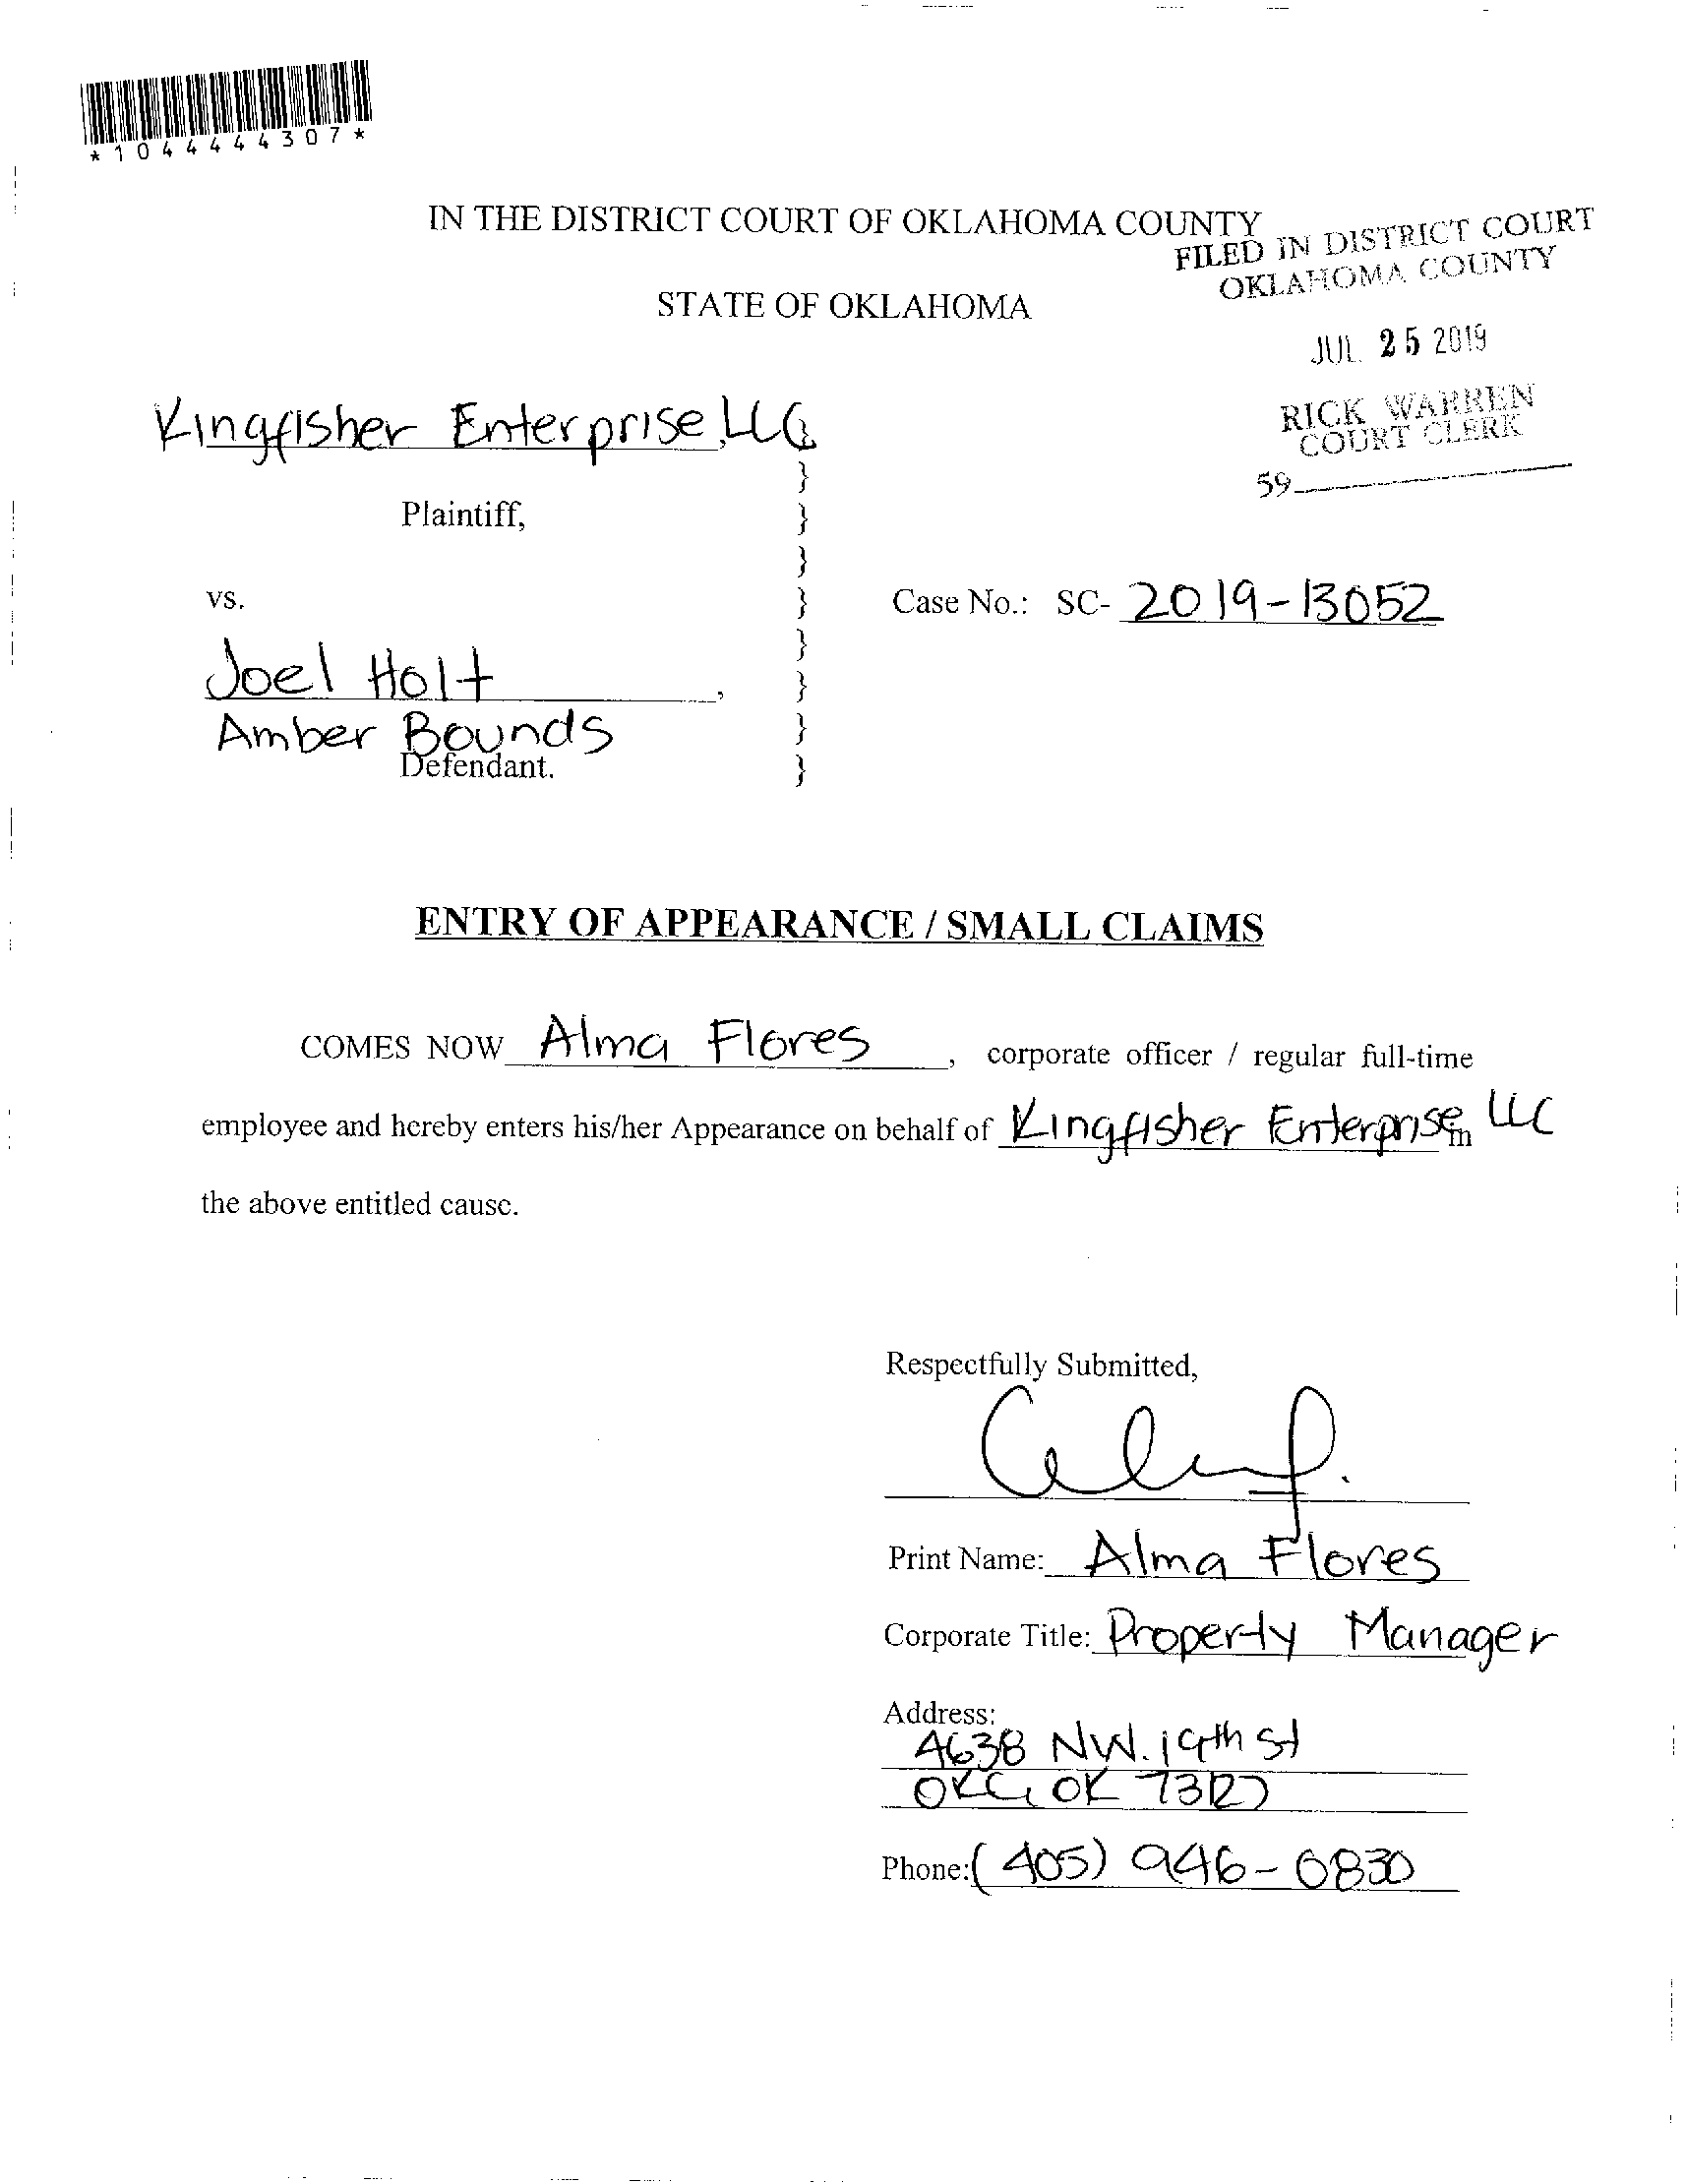 *1044444307*
IN THE DISTRICT COURT OF OKLAHOMA COUNTY
FILED IN DISTRICT COURT
OKLAHOMA COUNTY
STATE OF OKLAHOMA
JUL 25 2019
RICK WARREN
COURT CLERK
59
Kingfisher Enterprise, LLC
}
Plaintiff, }
}
vs. } Case No.: SC- 2019-13052
}
Joel Holt , }
Amber Bounds }
Defendant. }
ENTRY OF APPEARANCE / SMALL CLAIMS
COMES NOW Alma Flores , corporate officer / regular full-time
employee and hereby enters his/her Appearance on behalf of Kingfisher Enterprise, LLC in
the above entitled cause.
Respectfully Submitted,
Print Name: Alma Flores
Corporate Title: Property Manager
Address:
4638 NW. 19th St
OKC, OK 73127
Phone: (405) 946-6830